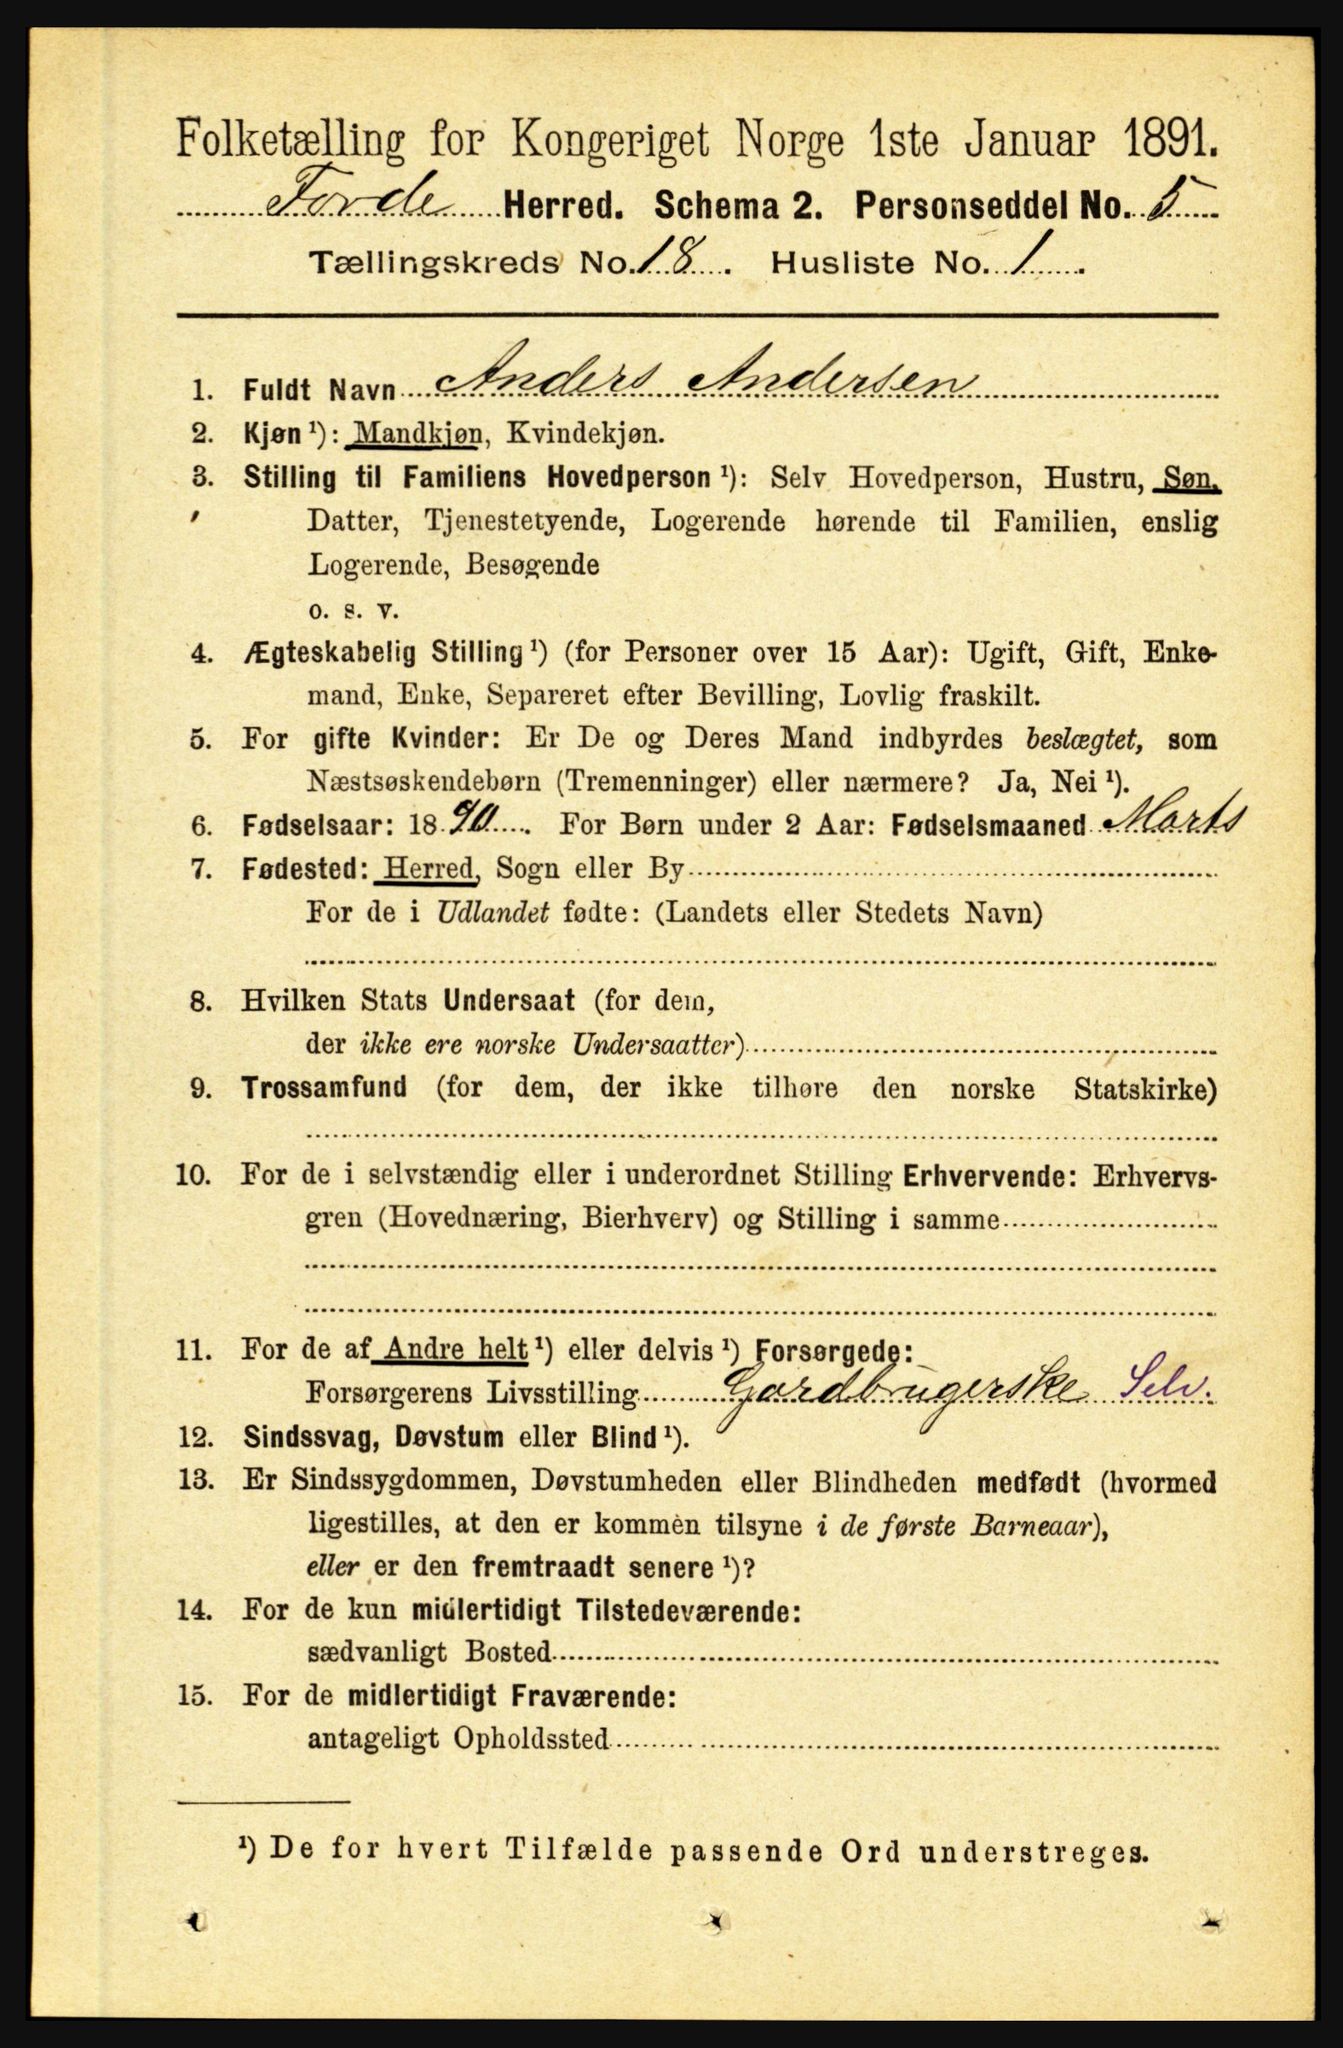 Folketælling for Kongeriget Norge 1ste Januar 1891.
Førde Herred. Schema 2. Personseddel No. 5
Tællingskreds No. 18. Husliste No. 1.
1. Fuldt Navn Anders Andersen
2. Kjøn¹): Mandkjøn, Kvindekjøn.
3. Stilling til Familiens Hovedperson¹): Selv Hovedperson, Hustru, Søn,
Datter, Tjenestetyende, Logerende hørende til Familien, enslig
Logerende, Besøgende
o. s. v.
4. Ægteskabelig Stilling¹) (for Personer over 15 Aar): Ugift, Gift, Enke-
mand, Enke, Separeret efter Bevilling, Lovlig fraskilt.
5. For gifte Kvinder: Er De og Deres Mand indbyrdes beslægtet, som
Næstsøskendebørn (Tremenninger) eller nærmere? Ja, Nei¹).
6. Fødselsaar: 1890. For Børn under 2 Aar: Fødselsmaaned Marts
7. Fødested: Herred, Sogn eller By
For de i Udlandet fødte: (Landets eller Stedets Navn)
8. Hvilken Stats Undersaat (for dem,
der ikke ere norske Undersaatter)
9. Trossamfund (for dem, der ikke tilhøre den norske Statskirke)
10. For de i selvstændig eller i underordnet Stilling Erhvervende: Erhvervs-
gren (Hovednæring, Bierhverv) og Stilling i samme
11. For de af Andre helt¹) eller delvis¹) Forsørgede:
Forsørgerens Livsstilling Gardbrugerske Selv.
12. Sindssvag, Døvstum eller Blind¹).
13. Er Sindssygdommen, Døvstumheden eller Blindheden medfødt (hvormed
ligestilles, at den er kommen tilsyne i de første Barneaar),
eller er den fremtraadt senere¹)?
14. For de kun midlertidigt Tilstedeværende:
sædvanligt Bosted
15. For de midlertidigt Fraværende:
antageligt Opholdssted
¹) De for hvert Tilfælde passende Ord understreges.